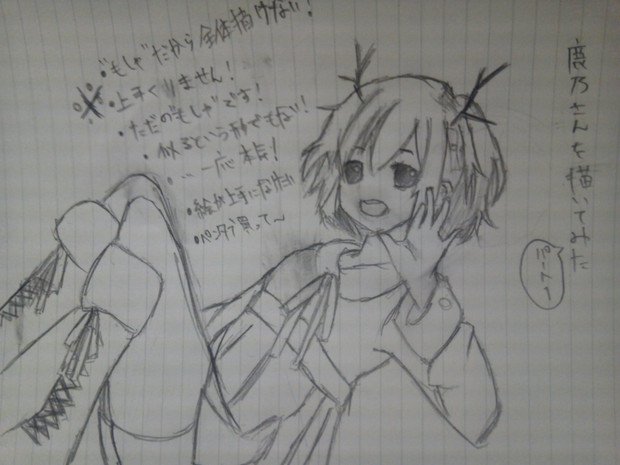 鹿乃さんを描いてみた
パート1
・"もしゃ"だから全体描けない!
※・上手くありません!
・ただの"もしゃ"です!
・似るという形でもない!
・…一応本気!
・絵が上手になりたい
・ペンタブ買って〜